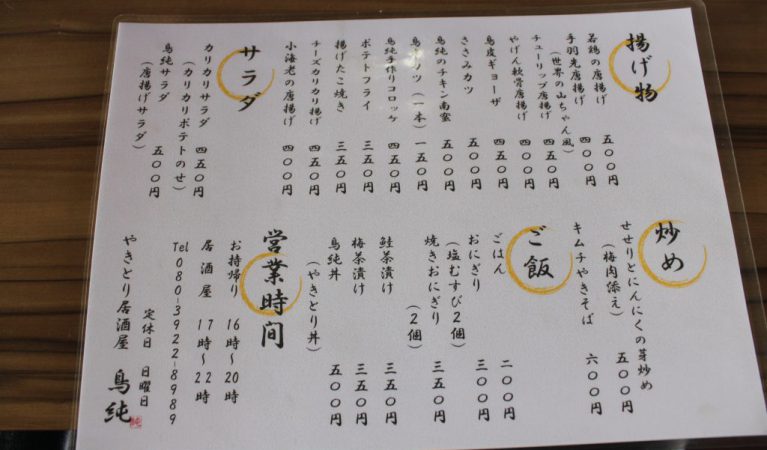 揚げ物
若鶏の唐揚げ 五〇〇円
手羽先唐揚げ 四〇〇円
(世界の山ちゃん風)
チューリップ唐揚げ 四五〇円
やげん軟骨唐揚げ 五〇〇円
鳥皮ギョーザ 四五〇円
ささみカツ 五〇〇円
鳥純のチキン南蛮 五〇〇円
鳥 カツ (一本) 一五〇円
鳥純手作りコロッケ 四五〇円
ポテトフライ 三五〇円
揚げたこ焼き 三五〇円
チーズカリカリ揚げ 四五〇円
小海老の唐揚げ 四〇〇円
サラダ
カリカリサラダ 四五〇円
(カリカリポテトのせ)
鳥純サラダ 五〇〇円
(唐揚げサラダ)
炒め
せせりとにんにくの芽炒め
(梅肉添え) 五〇〇円
キムチやきそば 六〇〇円
ご飯
ごはん 二〇〇円
おにぎり 三〇〇円
(塩むすび2個)
焼きおにぎり 三五〇円
(2個)
鮭茶漬け 三五〇円
梅茶漬け 三五〇円
鳥純丼 五〇〇円
(やきとり丼)
営業時間
お持帰り 16時〜20時
居酒屋 17時〜22時
Tel 080-3922-8989
定休日 日曜日
やきとり居酒屋 鳥純